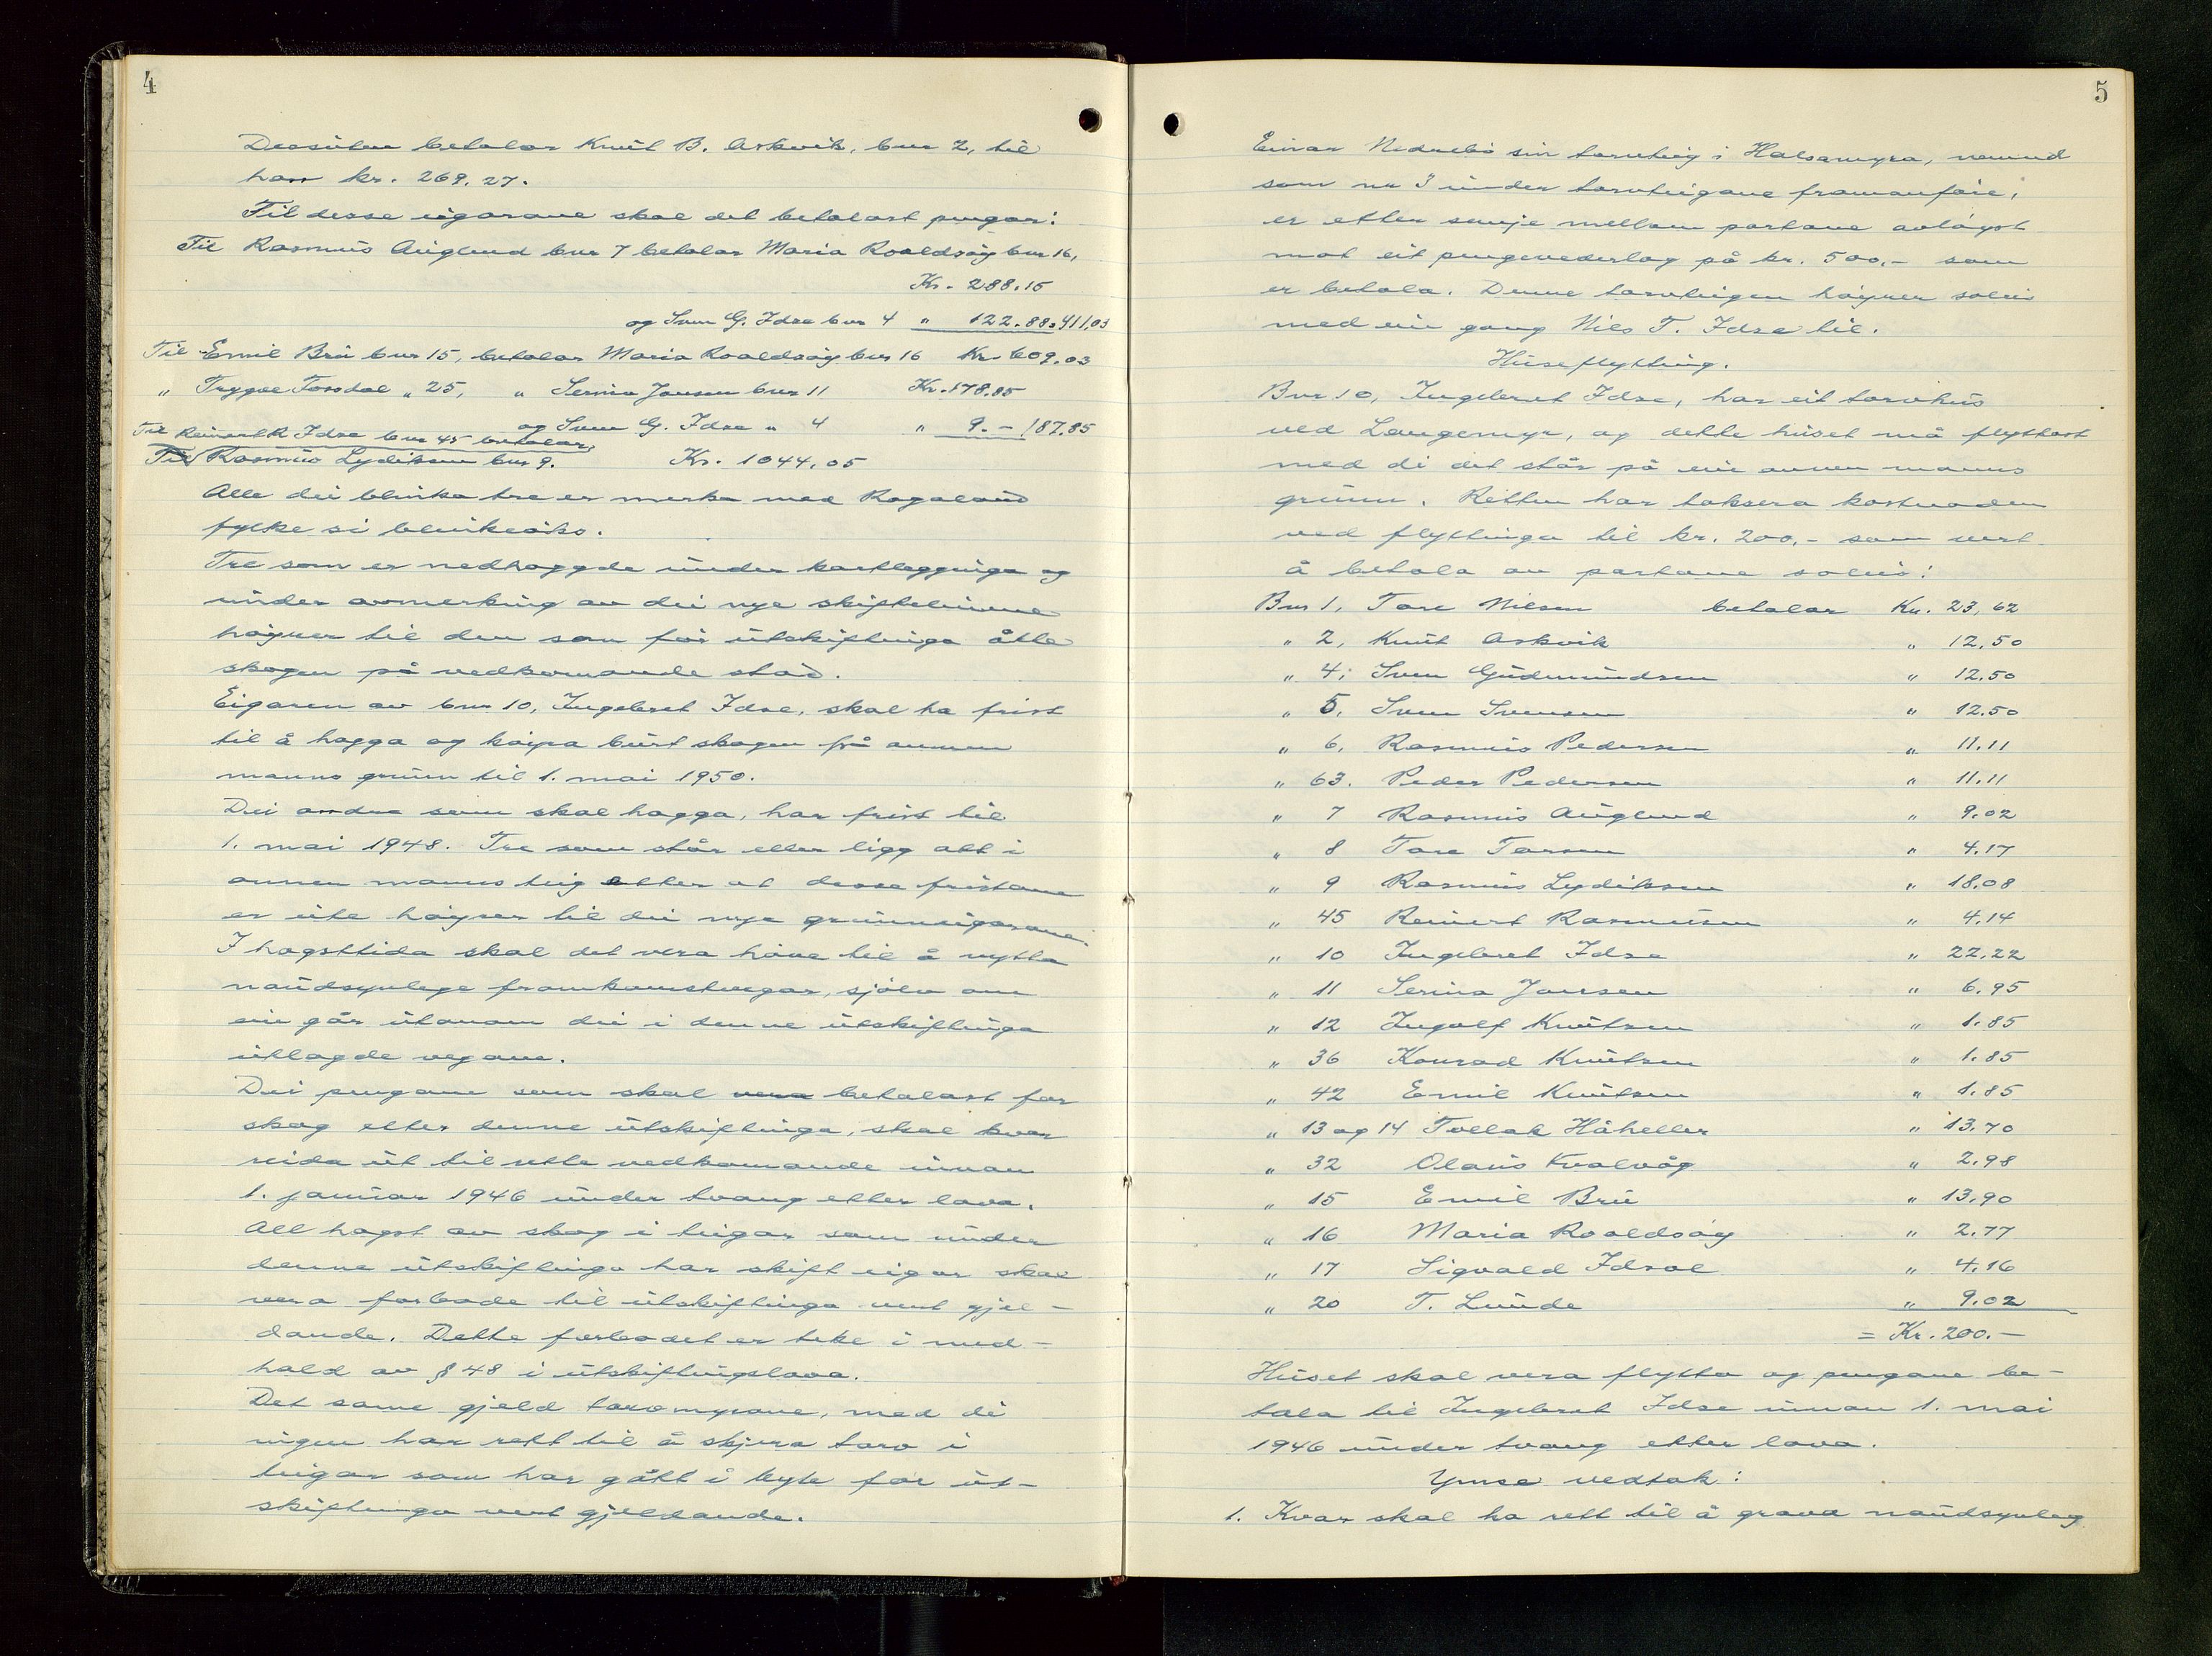 4
Dessuten betalar Knut B. Askvik, bnr 2, til
han kr. 269.27.
Til desse eigarane skal det betalast pengar:
Til Rasmus Auglend bnr 7 betalar Maria Roaldsøy bnr 16,
Kr. 288.15
og Sven G. Idse bnr 4 " 122.88 = 411,03
Til Emil Bru bnr 15, betalar Maria Roaldsøy bnr 16 Kr. 609.03
" Trygve Torsdal " 25, " Serina Jonsen bnr 11 Kr. 178.85
og Sven G. Idse " 4 " 9.- 187.85
Til Reinert R Idse bnr 45 betalar
Til Rasmus Lydiksen bnr 9. Kr. 1044.05
Alle dei blinka tre er merka med Rogaland
fylke si blinkeøks.
Tre som er nedhoggde under kartlegginga og
under avmerking av dei nye skiftelinene
høyrer til den som før utskiftinga åtte
skogen på vedkomande stad.
Eigaren av bnr 10, Ingebret Idse, skal ha frist
til å hogga og køyra burt skogen frå annen
manns grunn til 1. mai 1950.
Dei andre som skal hogga, har frist til
1. mai 1948. Tre som står eller ligg att i
annen manns teig etter at desse fristane
er ute høyrer til dei nye grunneigarane.
I hogsttida skal det vera høve til å nytta
naudsynlege framkomstvegar, sjølv om
ein går utanom dei i denne utskiftinga
utlagde vegane.
Dei pengane som skal vera betalast for
skog etter denne utskiftinga, skal kvar
reida ut til rette vedkomande innan
1. januar 1946 under tvang etter lova.
All hogst av skog i teigar som under
denne utskiftinga har skift eigar skal
vera forbode til utskiftinga vert gjel-
dande. Dette forbodet er teke i med-
hald av § 48 i utskiftingslova.
Det same gjeld torvmyrane, med di
ingen har rett til å skjera torv i
teigar som har gått i byte før ut-
skiftinga vert gjeldande.
5
Einar Nedrebø sin torvteig i Halsamyra, nemnd
som nr 3 under torvteigane framanføre,
er etter semje mellom partane avløyst
mot eit pengevederlag på kr. 500.- som
er betala. Denne torvteigen høyrer soleis
med ein gong Nils T. Idse til.
Huseflytting.
Bnr 10, Ingebret Idse, har eit torvhus
ved Langemyr, og dette huset må flyttast
med di det står på ein annen manns
grunn. Retten har taksera kostnaden
ved flyttinga til kr. 200.- som vert
å betala av partane soleis:
Bnr 1, Tore Nilsen betalar Kr. 23,62
" 2, Knut Askvik " 12.50
" 4, Sven Gudmundsen " 12.50
" 5, Sven Svensen " 12.50
" 6, Rasmus Pedersen " 11.11
" 63. Peder Pedersen " 11.11
" 7 Rasmus Auglend " 9.02
" 8 Tore Torsen " 4.17
" 9 Rasmus Lydiksen " 18.08
" 45 Reinert Rasmussen " 4.14
" 10 Ingebret Idse " 22.22
" 11 Serina Jonsen " 6.95
" 12 Ingolf Knutsen " 1.85
" 36 Konrad Knutsen " 1.85
" 42 Emil Knutsen " 1.85
" 13 og 14 Tollak Håheller " 13.70
" 32 Olaus Kvalvåg " 2.98
" 15 Emil Bru " 13.90
" 16 Maria Roaldsøy " 2.77
" 17 Sigvald Idsal " 4.16
" 20 T. Lunde " 9.02
= Kr. 200.-
Huset skal vera flytta og pengane be-
tala til Ingebret Idse innan 1. mai
1946 under tvang etter lova.
Ymse vedtak:
1. Kvar skal ha rett til å grava naudsynleg